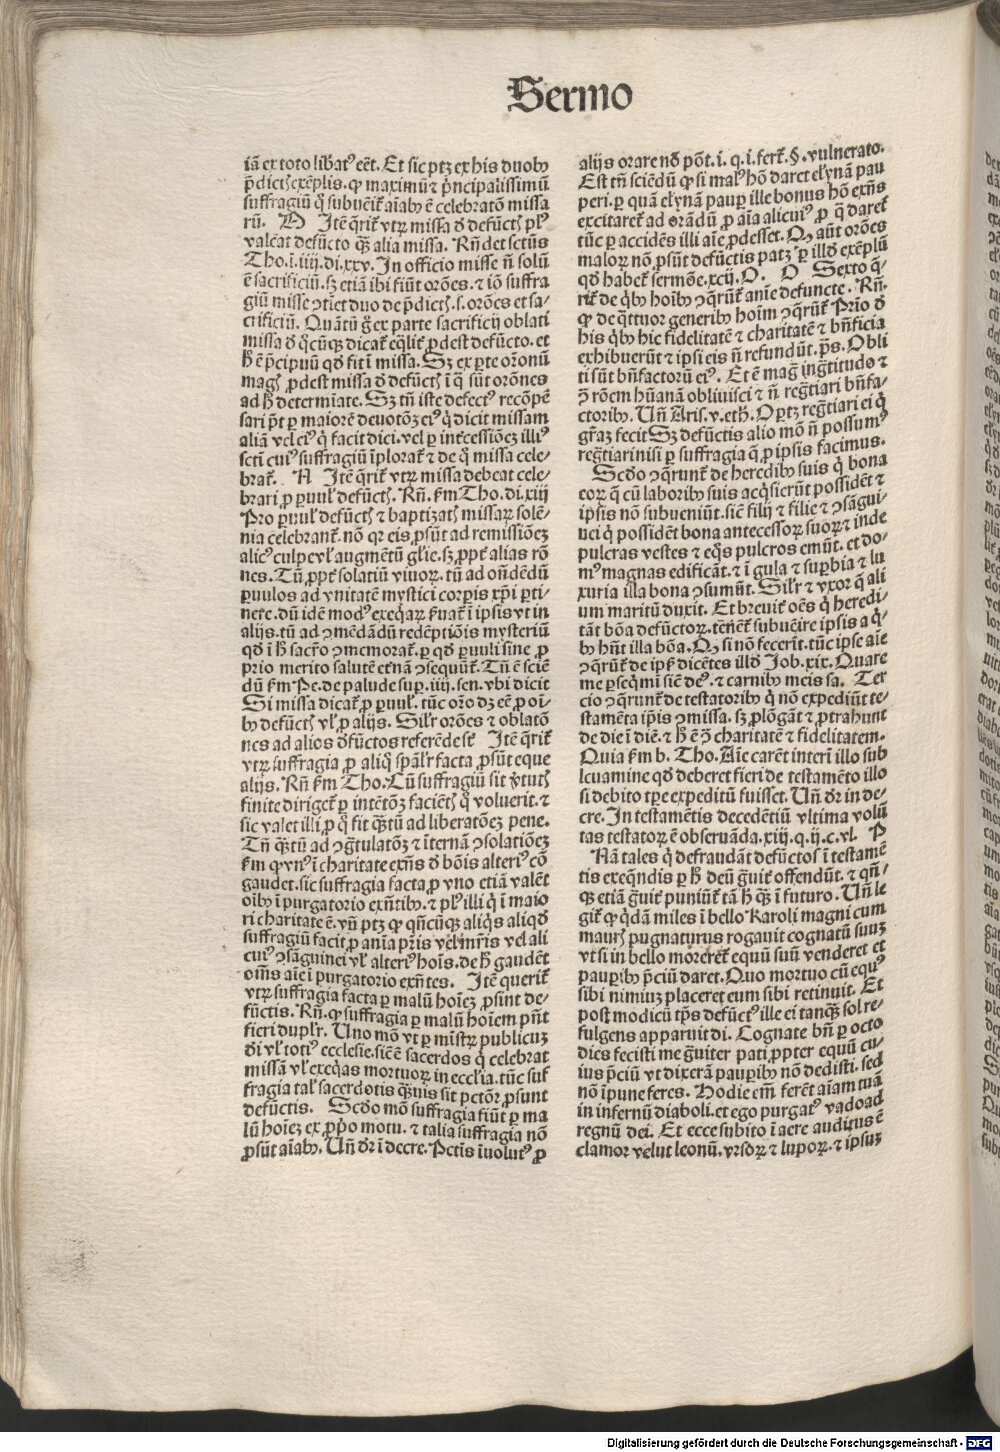 Sermo
iã ex toto lib̃atꝰ eẽt. Et sic ptꝫ ex his duobꝰ
p̃dictꝭ exẽplis. ꝙ maximũ ⁊ p̃ncipalissimũ
suffragiũ q̃ subuẽit̃ aĩabꝰ ẽ celebratõ missa
rũ. Itẽ q̃rit̃ vtꝝ missa ꝓ defũctꝭ plꝰ
valeat defũcto q̃ꝫ alia missa. Rñdet sctũs
Tho. i. iiij. di. xxv. In officio misse ñ solũ
ẽ sacrificiũ. sꝫ etiã ibi fiũt orões. ⁊ iõ suffra
giũ misse ꝯtinet duo de p̃dictꝭ. s. orões et sa-
crificiũ. Quãtũ g̃ ex parte sacrificij oblati
missa ꝺ q̃cũqꝫ dicat̃ eq̃lit̃ ꝓdest defũcto. et
ħ ẽ p̃cipuũ qđ fit ĩ missa. Sꝫ ex ꝑte oronũ
magꝭ ꝓdest missa ꝺ defũctꝭ ĩ q̃ sũt orõnes
ad ħ determiate. Sꝫ tñ iste defectꝰ recõpẽ
sari põt ꝑ maiorẽ deuotõꝫ eiꝰ q̇ dicit missam
aliã vel eiꝰ q̇ facit dici. vel ꝑ int̃cessiõeꝫ illiꝰ
scti cuiꝰ suffragiũ ĩplorat̃ ⁊ de q̇ missa cele-
brat̃. Itẽ q̃rit̃ vtꝝ missa debeat cele-
brari ꝓ ꝑuul̃ defũctꝭ. Rñ. ẜm Tho. di. xiij
Pro ꝑuul̃ defũctꝭ ⁊ baptizatꝭ missaꝝ solẽ-
nia celebrant̃. nõ qꝛ eis ꝓsũt ad remissiõeꝫ
alicꝰ culpe vl̃ augmẽtũ gl̃ie. sꝫ ꝓpt̃ alias rõ
nes. Tũ ꝓpt̃ solatiũ viuoꝝ. tũ ad oñdẽdũ
ꝑuulos ad vnitatẽ mystici corꝑis xp̃i ꝑti-
nere. dũ idẽ modꝰ exeq̃aꝝ ẜuat̃ ĩ ipsis vt in
alijs. tũ ad ꝯmẽdãdũ redẽptiõis mysteriũ
qđ ĩ ħ sacr̃o ꝯmemorat̃. ꝑ qđ ꝑuuli sine ꝓ
prio merito salutẽ et̃nã ꝯsequũt̃. Tñ ẽ sciẽ
dũ ẜm Pe. de palude suꝑ. iiij. sen. vbi dicit
Si missa dicat̃ ꝓ ꝑuul̃. tũc oro dꝫ eẽ ꝓ oi-
bꝰ defũctꝭ vl̃ ꝓ alijs. Sil̃r orões ⁊ oblatõ
nes ad alios ꝺfũctos referẽde sũt Itẽ q̃rit̃
vtꝝ suffragia ꝓ aliq̇ sp̃al̃r facta ꝓsũt eque
alijs. Rñ ẜm Tho. Cũ suffragiũ sit v̓tutꝭ
finite dirigeť ꝑ intẽtõꝫ faciẽtꝭ q̇ voluerit. ⁊
sic valet illi ꝓ q̇ fit q̃ꝫtũ ad liberatõeꝫ pene.
Tñ q̃ꝫtũ ad ꝯg̃tulatõꝫ ⁊ ĩternã ꝯsolatiõeꝫ
ẜm ꝙ vnꝰ ĩ charitate exñs ꝺ bõis alteriꝰ cõ
gaudet. sic suffragia facta ꝓ vno etiã valẽt
oĩbꝰ ĩ purgatorio exñtibꝰ. ⁊ plꝰ illi q̇ ĩ maio
ri charitate ẽ. vñ ptꝫ ꝙ qñcũqꝫ aliq̇s aliqđ
suffragiũ facit ꝓ aĩa pr̃is vel mr̃is vel ali
cuiꝰ ꝯsãguinei vl̃ alteriꝰ hoĩs. de ħ gaudẽt
om̃s aĩe ĩ purgatorio exñtes. Itẽ querit̃
vtꝝ suffragia facta ꝑ malũ hoĩeꝫ ꝓsint de-
fũctis. Rñ. ꝙ suffragia ꝑ malũ hoĩem pñt
fieri dupl̃r. Uno mõ vt ꝑ mĩstꝝ publicuꝫ
ꝺi vl̃ totiꝰ ecclesie. sic ẽ sacerdos q̇ celebrat
missã vl̃ exeq̃as mortuoꝝ in eccl̃ia. tũc suf
fragia tal̃ sacerdotis q̃ꝫuis sit pctõr ꝓsunt
defũctis. Scđo mõ suffragia fiũt ꝑ ma
lũ hoĩeꝫ ex ꝓp̃o motu. ⁊ talia suffragia nõ
ꝓsũt aĩabꝰ. Uñ dr̃ ĩ decre. Pctĩs ĩuolutꝰ ꝓ
alijs orare nõ põt. i. q. i. fert̃. §. vulnerato.
Est tñ sciẽdũ ꝙ si malꝰ hõ daret el̃ynã pau
peri. ꝑ quã el̃ynã pauꝑ ille bonus hõ exñs
excitaret̃ ad orãdũ ꝓ aĩa alicuiꝰ ꝓ q̃ daret̃
tũc ꝑ accidẽs illi aĩe ꝓdesset. Qꝫ aũt orões
maloꝝ nõ ꝓsũt defũctis patꝫ ꝑ illđ exẽplũ
qđ habet̃ sermõe. xcij. O. O Sexto q̃-
rit̃ de q̇bꝰ hoĩbꝰ ꝯq̃rũt̃ anĩe defuncte. Rñ.
ꝙ de q̃ttuor generibꝰ hoĩm ꝯq̃rũt̃ Prĩo ꝺ
his q̇bꝰ hic fidelitatẽ ⁊ charitatẽ ⁊ bñficia
exhibuerũt ⁊ ipsi eis ñ refundũt. p̃s. Obli
ti sũt bñfactorũ eiꝰ. Et ẽ mag̃ ing̃titudo ⁊
ꝯ̃ rõem hũanã obliuisci ⁊ ñ reg̃tiari bñfa-
ctoribꝰ. Uñ Aris. v. eth. Oꝑtꝫ reg̃tiari ei q̇
gr̃aꝫ fecit Sꝫ defũctis alio mõ ñ possumꝰ
reg̃tiari nisi ꝑ suffragia q̃ ꝓ ipsis facimus.
Scđo ꝯq̃runt̃ de heredibꝰ suis q̇ bona
eoꝝ q̃ cũ laboribꝰ suis acq̇sierũt possidẽt ⁊
ip̃sis nõ subueniũt. sic ẽ filij ⁊ filie ⁊ ꝯsãgui-
nei q̇ possidẽt bona antecessoꝝ suoꝝ ⁊ inde
pulcras vestes ⁊ eq̃s pulcros emũt. et do-
mꝰ magnas edificãt. ⁊ ĩ gula ⁊ suꝑbia ⁊ lu
xuria illa bona ꝯsumũt. Sil̃r ⁊ vxor q̃ ali
um maritũ duxit. Et breuit̃ oẽs q̇ heredi-
tãt bõa defũctoꝝ. tenẽt̃ subuẽire ipsis a q̇-
bꝰ hñt illa bõa. Qꝫ si nõ fecerit. tũc ipse aĩe
ꝯq̃rũt̃ de ip̃ẜ dicẽtes illđ Job. xix. Quare
me ꝑseq̇mi sic ẽ deꝰ. ⁊ carnibꝰ meis sa. Ter
cio ꝯq̃runt̃ de testatoribꝰ q̇ nõ expediũt te-
stamẽta ip̃is ꝯmissa. sꝫ ꝓlõgãt ⁊ ꝓtrahunt
de die ĩ diẽ. ⁊ ħ ẽ ꝯ̃ charitatẽ ⁊ fidelitatem.
Quia ẜm b. Tho. Aĩe carẽt interĩ illo sub
leuamine qđ deberet fieri de testamẽto illo
si debito tꝑe expeditũ fuisset. Uñ dr̃ in de-
cre. In testamẽtis decedẽtiũ vltima volũ
tas testatoꝝ ẽ obseruãda. xiij. q. ij. c. vl. P
Nã tales q̇ defraudãt defũctos ĩ testamẽ
tis exeq̃ndis ꝑ ħ deũ g̃uit̃ offendũt. ⁊ qñ-
qꝫ etiã g̃uit̃ puniũt̃ tã ħ q̃ꝫ ĩ futuro. Uñ le
git̃ ꝙ q̇dã miles ĩ bello Karoli magni cum
maurꝭ pugnaturus rogauit cognatũ suuꝫ
vt si in bello moreret̃ equũ suũ venderet et
pauꝑibꝰ p̃ciũ daret. Quo mortuo cũ equꝰ
sibi nimiuꝫ placeret eum sibi retinuit. Et
post modicũ tp̃s defũctꝰ ille ei tanqꝫ sol re-
fulgens apparuit di. Cognate bñ ꝑ octo
dies fecisti me g̃uiter pati ꝓpter equũ cu-
ius p̃ciũ vt dixerã pauꝑibꝰ nõ dedisti. sed
nõ ĩpune feres. Hodie em̃ ferẽt aĩam tuã
in infernũ diaboli. et ego purgatꝰ vado ad
regnũ dei. Et ecce subito ĩ aere auditus ẽ
clamor velut leonũ. vrsoꝝ ⁊ lupoꝝ. ⁊ ipsuꝫ
Digitalisierung gefördert durch die Deutsche Forschungsgemeinschaft - DFG